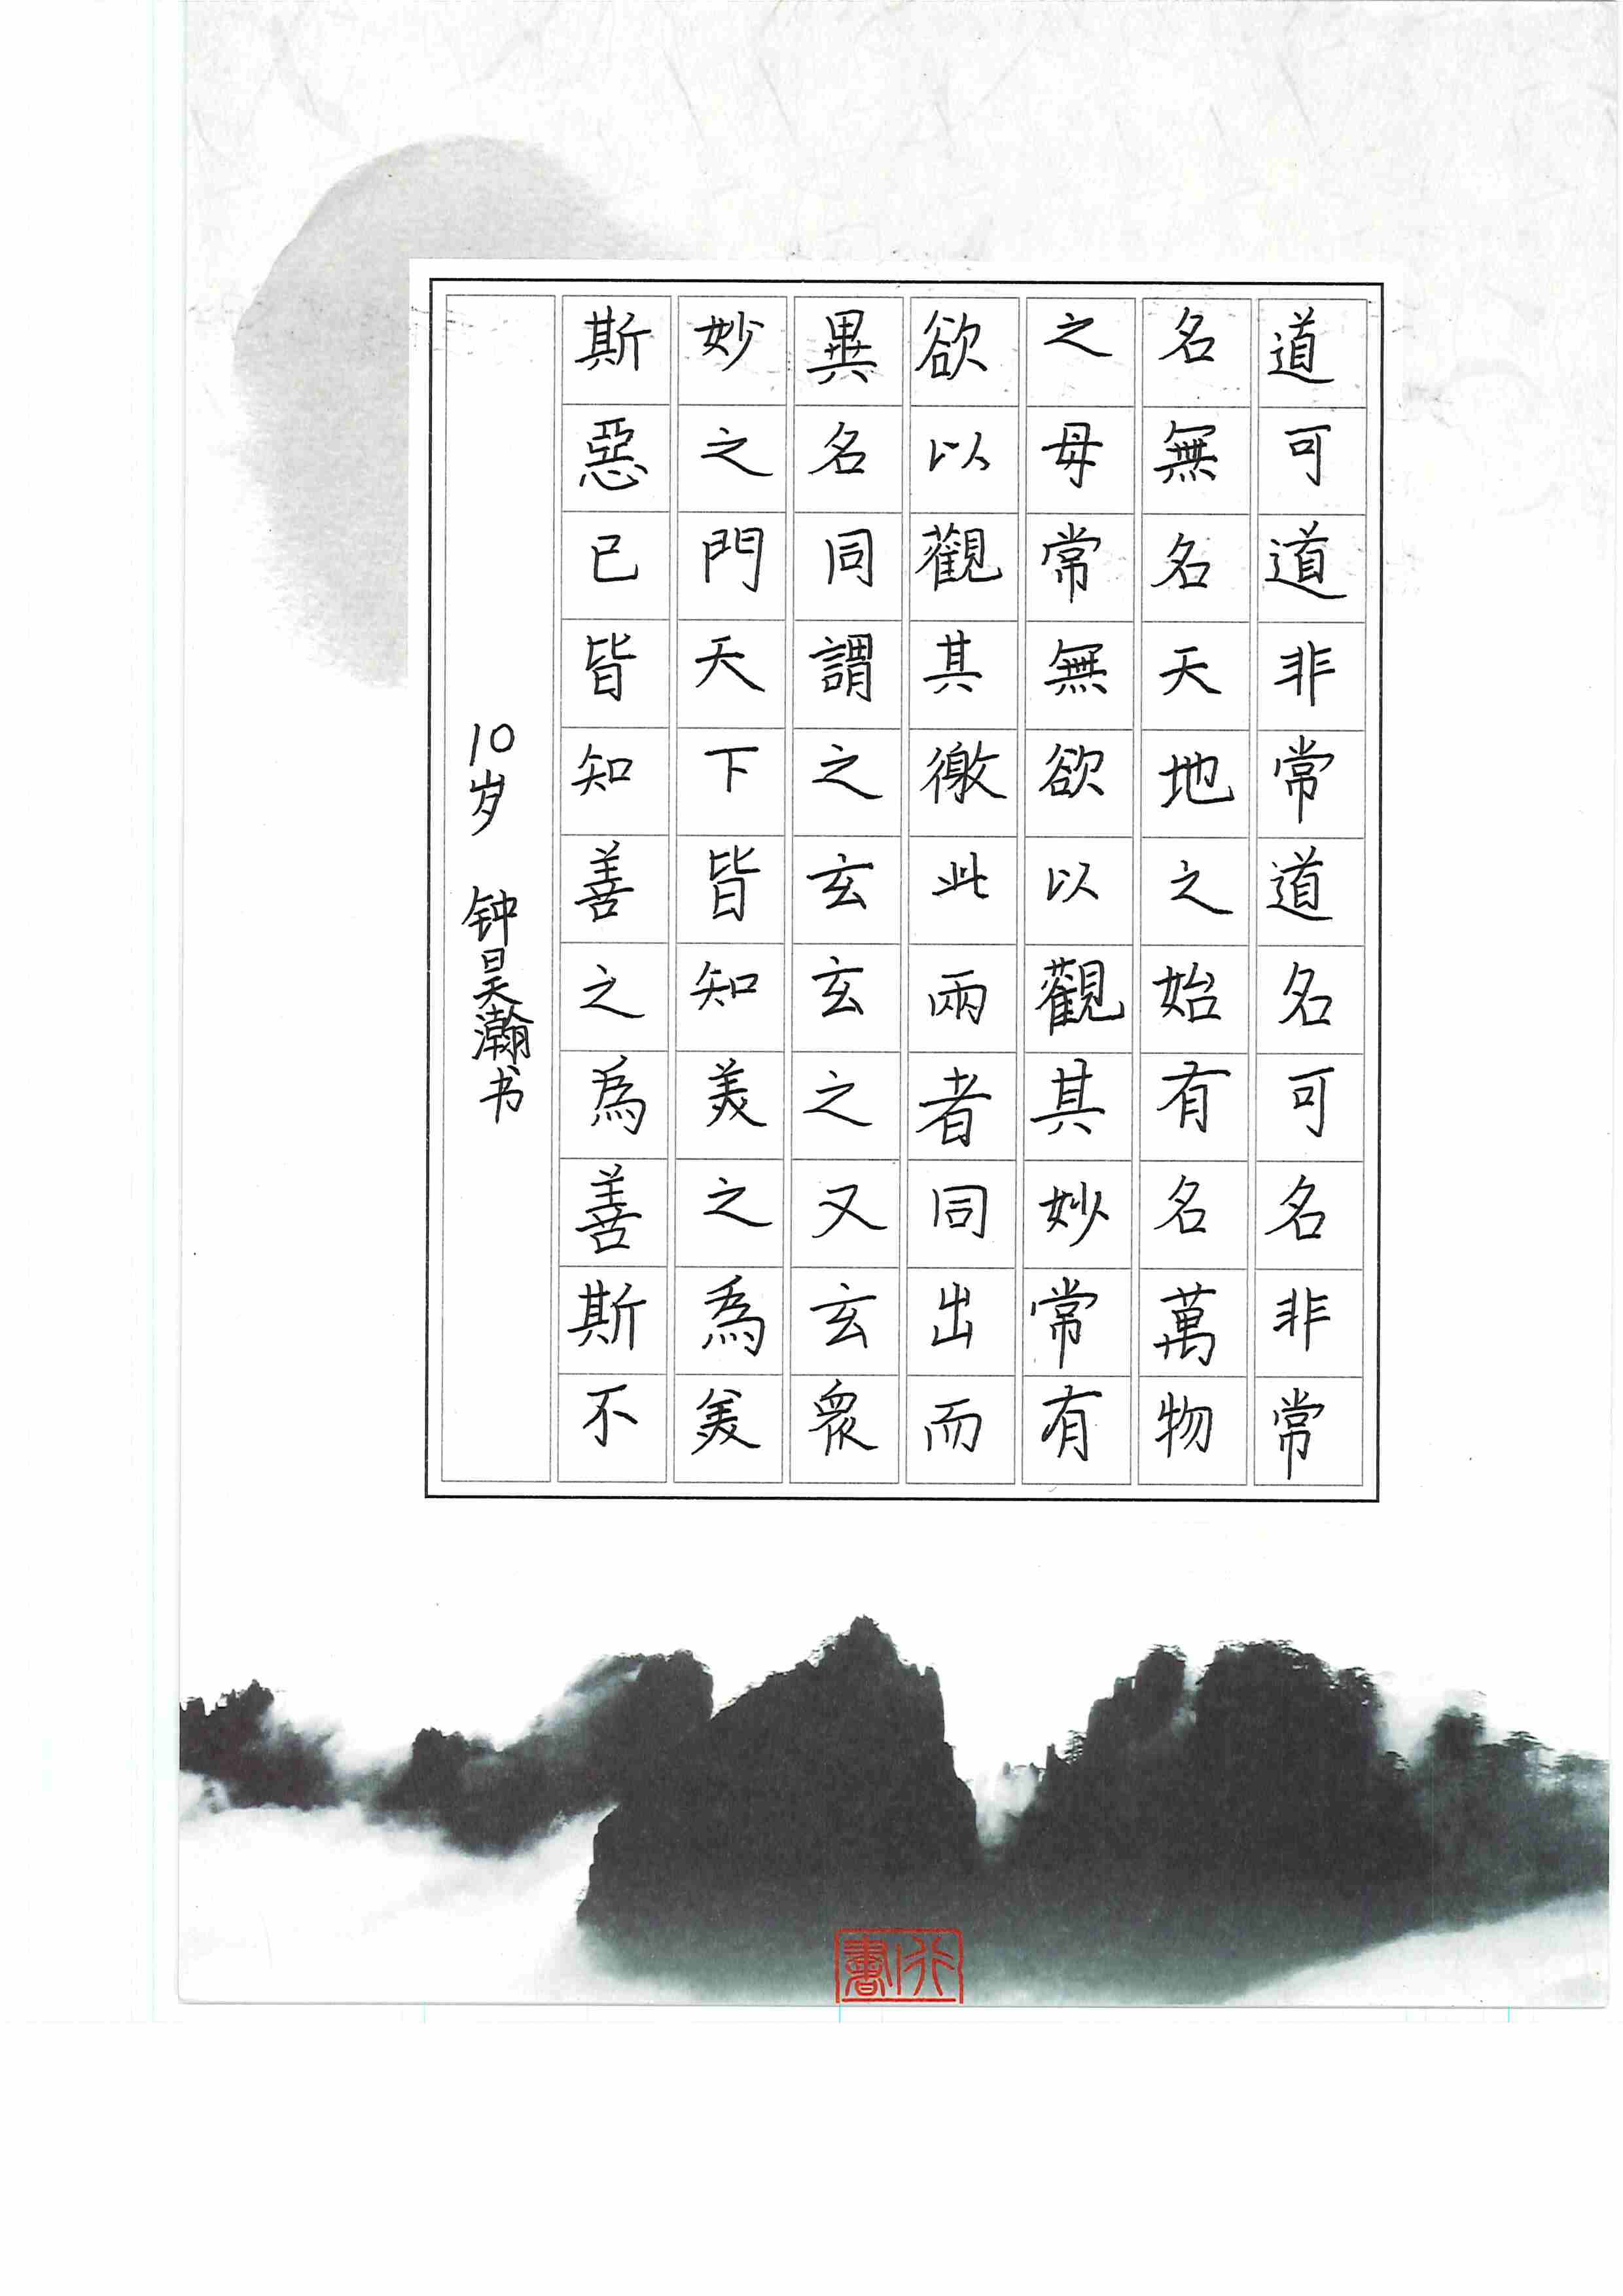 道可道非常道名可名非常
名無名天地之始有名萬物
之母常無欲以觀其妙常有
欲以觀其徼此兩者同出而
異名同謂之玄玄之又玄眾
妙之門天下皆知美之為美
斯惡已皆知善之為善斯不
10岁 钟昊瀚书